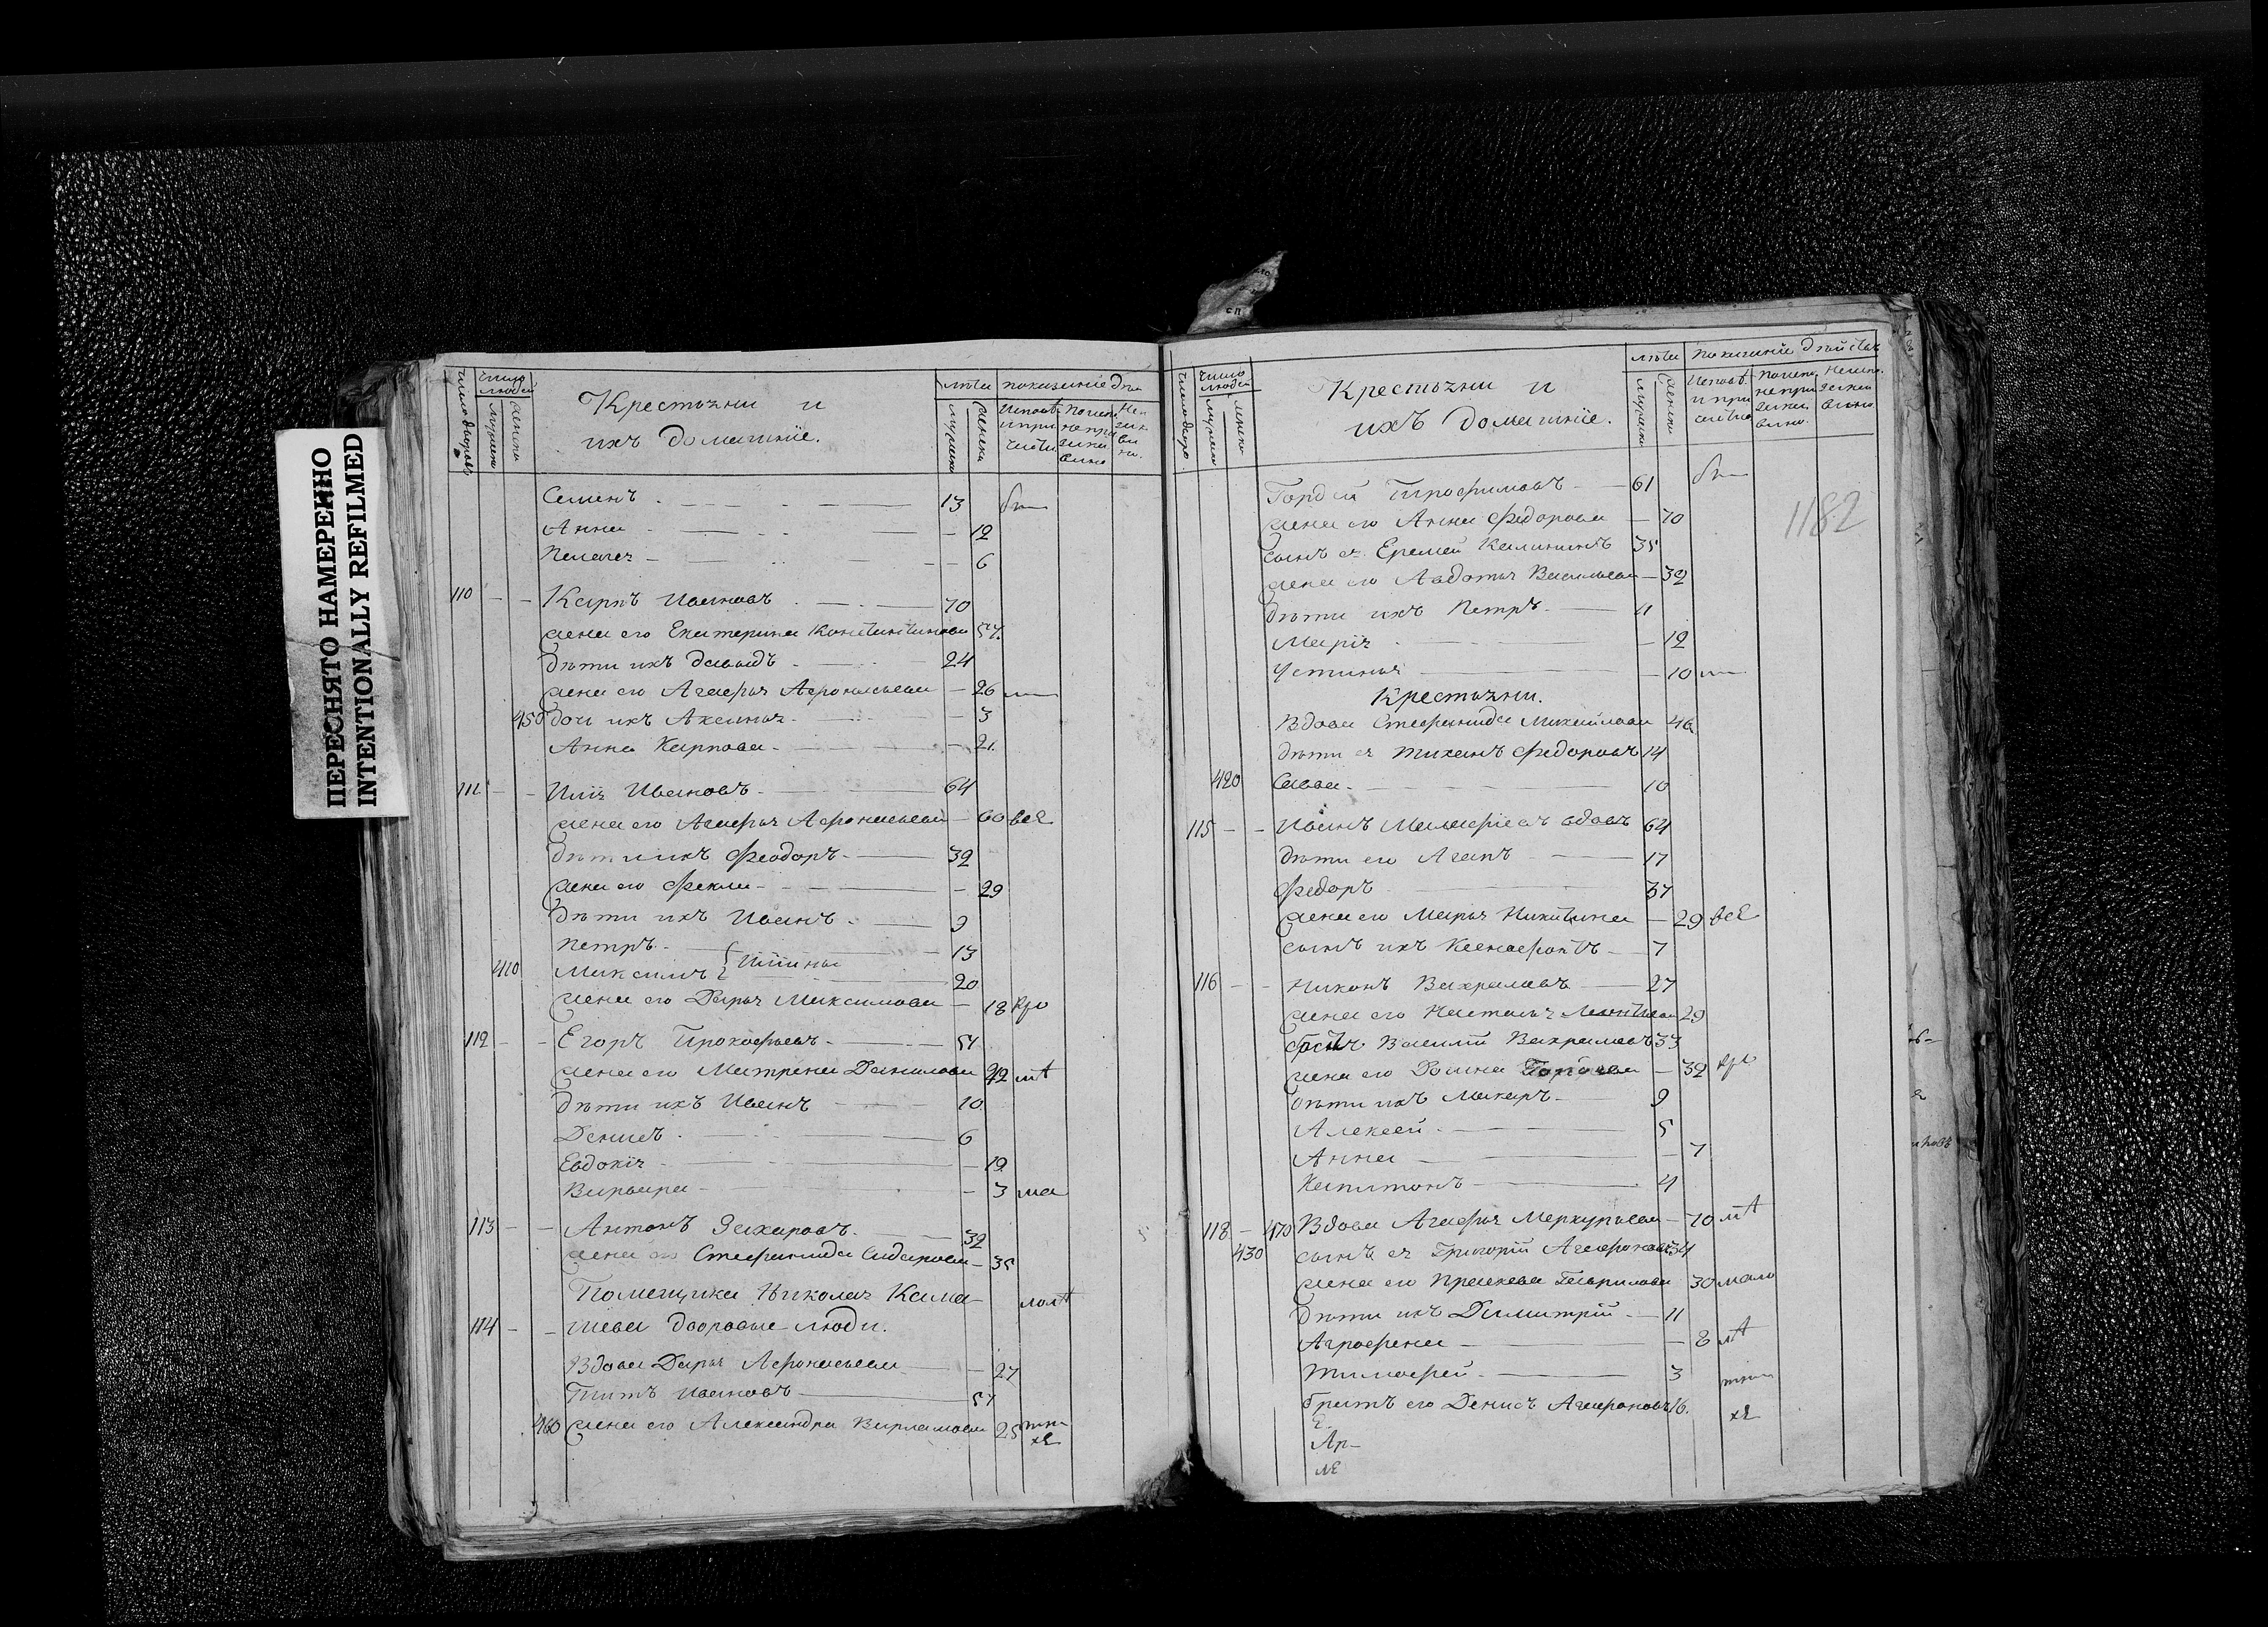 ПЕРЕСНЯТО НАМЕРЕННО
INTENTIONALLY REFILMED
число дворовъ
число людей
мужеска
женска
Крестьяни и
ихъ домашніе.
лѣта
мужеска
женска
показаніе
Семенъ 13
Анна 12
Пелагея 6
110 Карпъ Ивановъ 70
жена его Екатерина Константинова 57.
дѣти ихъ Давыдъ 24
жена его Агафья Афонасьева 26
450 дочь ихъ Аксинья 3
Анна Карпова 21.
111 Илія Ивановъ 64
жена его Агафья Афонасьева 60 все
дѣти ихъ Феодоръ 32
жена его Фекла 29
дѣти ихъ Иванъ 9
Петръ 13
410 Максимъ Иліины 20
жена его Дарья Максимова 18
112 Егоръ Прокофьевъ 51
жена его Матрена Данилова
дѣти ихъ Иванъ 10
Денисъ 6
Евдокія 12
Варвара 3
113 Антонъ Захаровъ 32
жена его Стефанида Сидарова 35
Помещика Николая Кама-
114 шева дворовые люди.
Вдова Дарья Афонасьева 27
Титъ Ивановъ 51
460 жена его Александра Варламова 25
число дворо.
число людей
мужеска
женско
Крестьяни и
ихъ домашніе.
лѣта
мужеска
женско
показаніе действа
1182
Гордей Трофимовъ 61
жена его Анна Федорова 70
сынъ ея Еремей Калининъ 35
жена его Авдотья Васильева 32
дѣти ихъ Петръ 11
Марія 12
Устинья 10
Крестьяни.
Вдова Стефанида Михайлова 46
дѣти ея Тиханъ Федоровъ 14
420 Савва 10
115 Иванъ Малафіевъ вдовъ 64
дѣти его Агапъ 17
Федоръ 37
жена его Марья Никитина 29 все
сынъ ихъ Ксенофонтъ 7
116 Никонъ Вахрамовъ 27
жена его Наталья 29
Василій Вахрамовъ 33
жена его Домна 32
дѣти ихъ Макаръ 9
Алексей 5
Анна 7
Капитонъ 4
118 470 Вдова Агафья Меркурьева 70
430 сынъ ея Григорій Агафоновъ 34
жена его Праскева Гаврилова 30
дѣти ихъ Димитрій 11
Аграфена 8
Тимофей 3
братъ его Денисъ Агафоновъ 16.